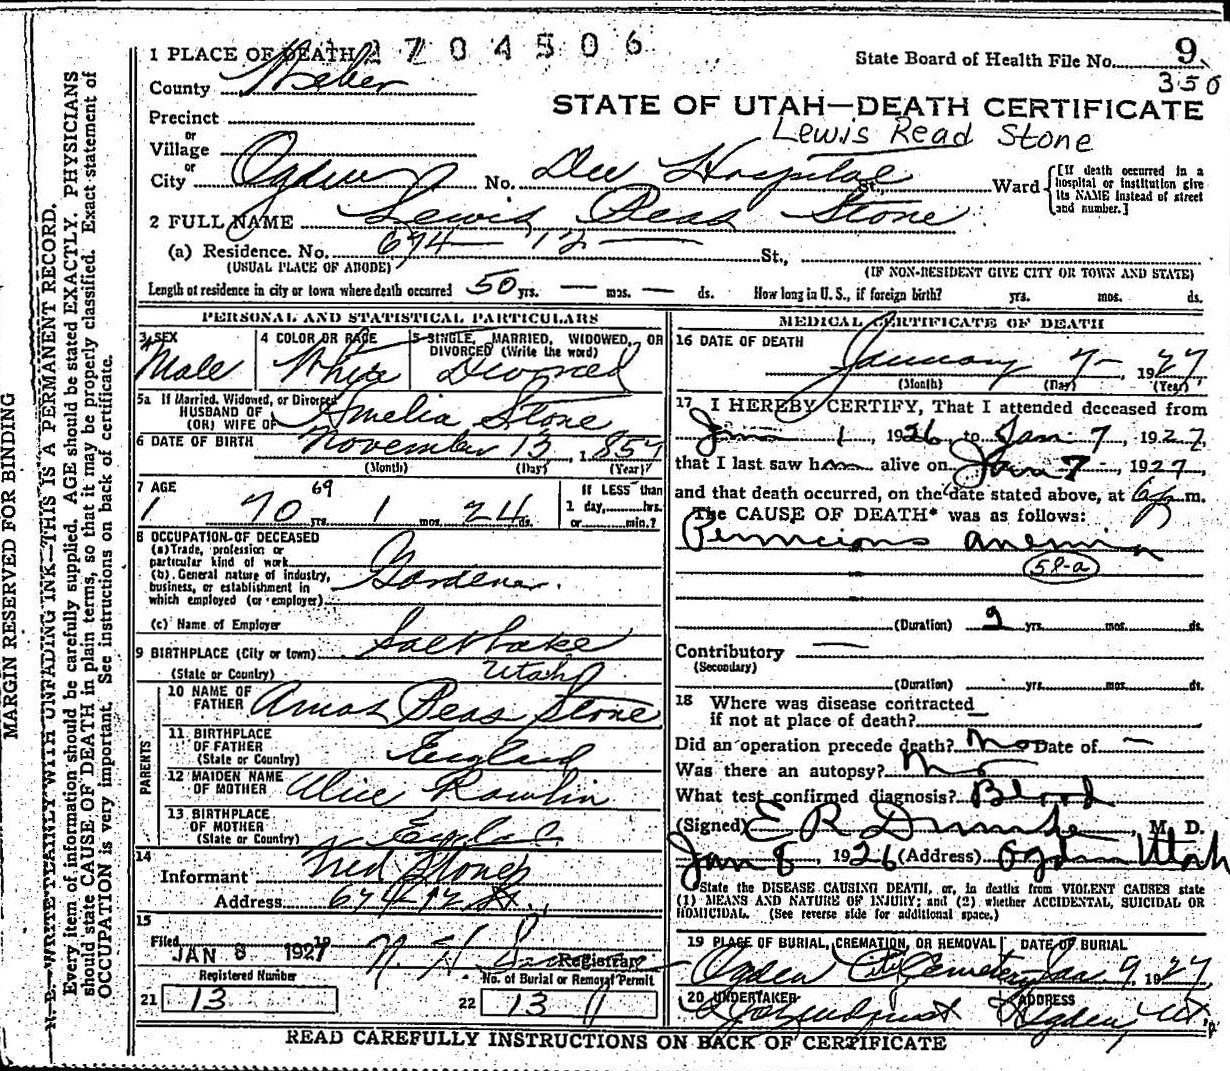 MARGIN RESERVED FOR BINDING
N. B.—WRITE PLAINLY WITH UNFADING INK—THIS IS A PERMANENT RECORD.
Every item of information should be carefully supplied. AGE should be stated EXACTLY. PHYSICIANS
should state CAUSE OF DEATH in plain terms, so that it may be properly classified. Exact statement of
OCCUPATION is very important. See instructions on back of certificate.
1 PLACE OF DEATH 2704506
State Board of Health File No. 9
350
County Weber
STATE OF UTAH—DEATH CERTIFICATE
Lewis Read Stone
Precinct
or
Village
or
City Ogden No. Dee Hospital St., Ward [If death occurred in a hospital or institution give its NAME instead of street and number.]
2 FULL NAME Lewis Reas Stone
(a) Residence. No. 674 12 St.,
(USUAL PLACE OF ABODE) (IF NON-RESIDENT GIVE CITY OR TOWN AND STATE)
Length of residence in city or town where death occurred 50 yrs. — mos. — ds. How long in U. S., if foreign birth? yrs. mos. ds.
PERSONAL AND STATISTICAL PARTICULARS
3 SEX Male
4 COLOR OR RACE White
5 SINGLE, MARRIED, WIDOWED, OR DIVORCED (Write the word) Divorced
5a If Married, Widowed, or Divorced
HUSBAND OF
(OR) WIFE OF Amelia Stone
6 DATE OF BIRTH November 13, 1857
(Month) (Day) (Year)
7 AGE 69
70 yrs. 1 mos. 24 ds.
If LESS than
1 day, hrs.
or min.?
8 OCCUPATION OF DECEASED
(a) Trade, profession or
particular kind of work
(b) General nature of industry,
business, or establishment in
which employed (or employer) Gardener.
(c) Name of Employer
9 BIRTHPLACE (City or town) Salt Lake
(State or Country) Utah
PARENTS
10 NAME OF FATHER Amos Peas Stone
11 BIRTHPLACE OF FATHER
(State or Country) England
12 MAIDEN NAME OF MOTHER Alice Rawlin
13 BIRTHPLACE OF MOTHER
(State or Country) England
14
Informant Fred Stone
Address 674-12 St.
15
Filed JAN 8 1927 Registrar
Registered Number No. of Burial or Removal Permit
21 13 22 13
MEDICAL CERTIFICATE OF DEATH
16 DATE OF DEATH
January 7— 1927
(Month) (Day) (Year)
17 I HEREBY CERTIFY, That I attended deceased from
1, 1926, to Jan 7, 1927,
that I last saw him alive on Jan 7, 1927,
and that death occurred, on the date stated above, at 6 p m.
The CAUSE OF DEATH* was as follows:
Pernicious anemia
58-a
(Duration) 2 yrs. mos. ds.
Contributory —
(Secondary)
(Duration) yrs. mos. ds.
18 Where was disease contracted
if not at place of death? —
Did an operation precede death? No Date of —
Was there an autopsy? No
What test confirmed diagnosis? Blood
(Signed) E R Dumke, M. D.
Jan 8, 1926 (Address) Ogden Utah
State the DISEASE CAUSING DEATH, or, in deaths from VIOLENT CAUSES state
(1) MEANS AND NATURE OF INJURY; and (2) whether ACCIDENTAL, SUICIDAL OR
HOMICIDAL. (See reverse side for additional space.)
19 PLACE OF BURIAL, CREMATION, OR REMOVAL DATE OF BURIAL
Ogden City Cemetery Jan. 9, 1927
20 UNDERTAKER ADDRESS
Ogden, Ut.
READ CAREFULLY INSTRUCTIONS ON BACK OF CERTIFICATE